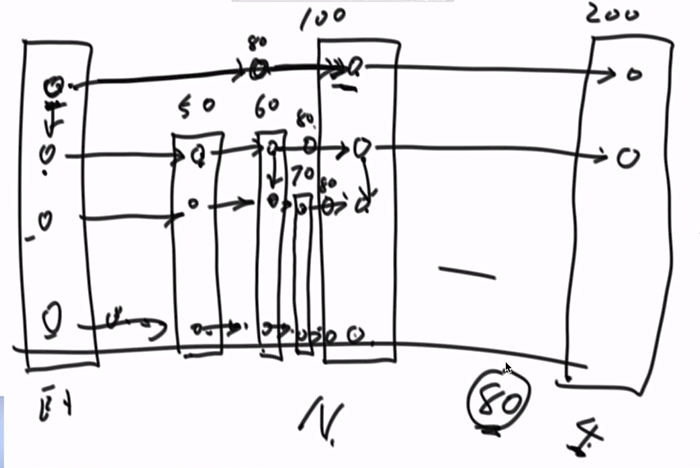 100
200
80
50
60
80
70
80
80
N.
4